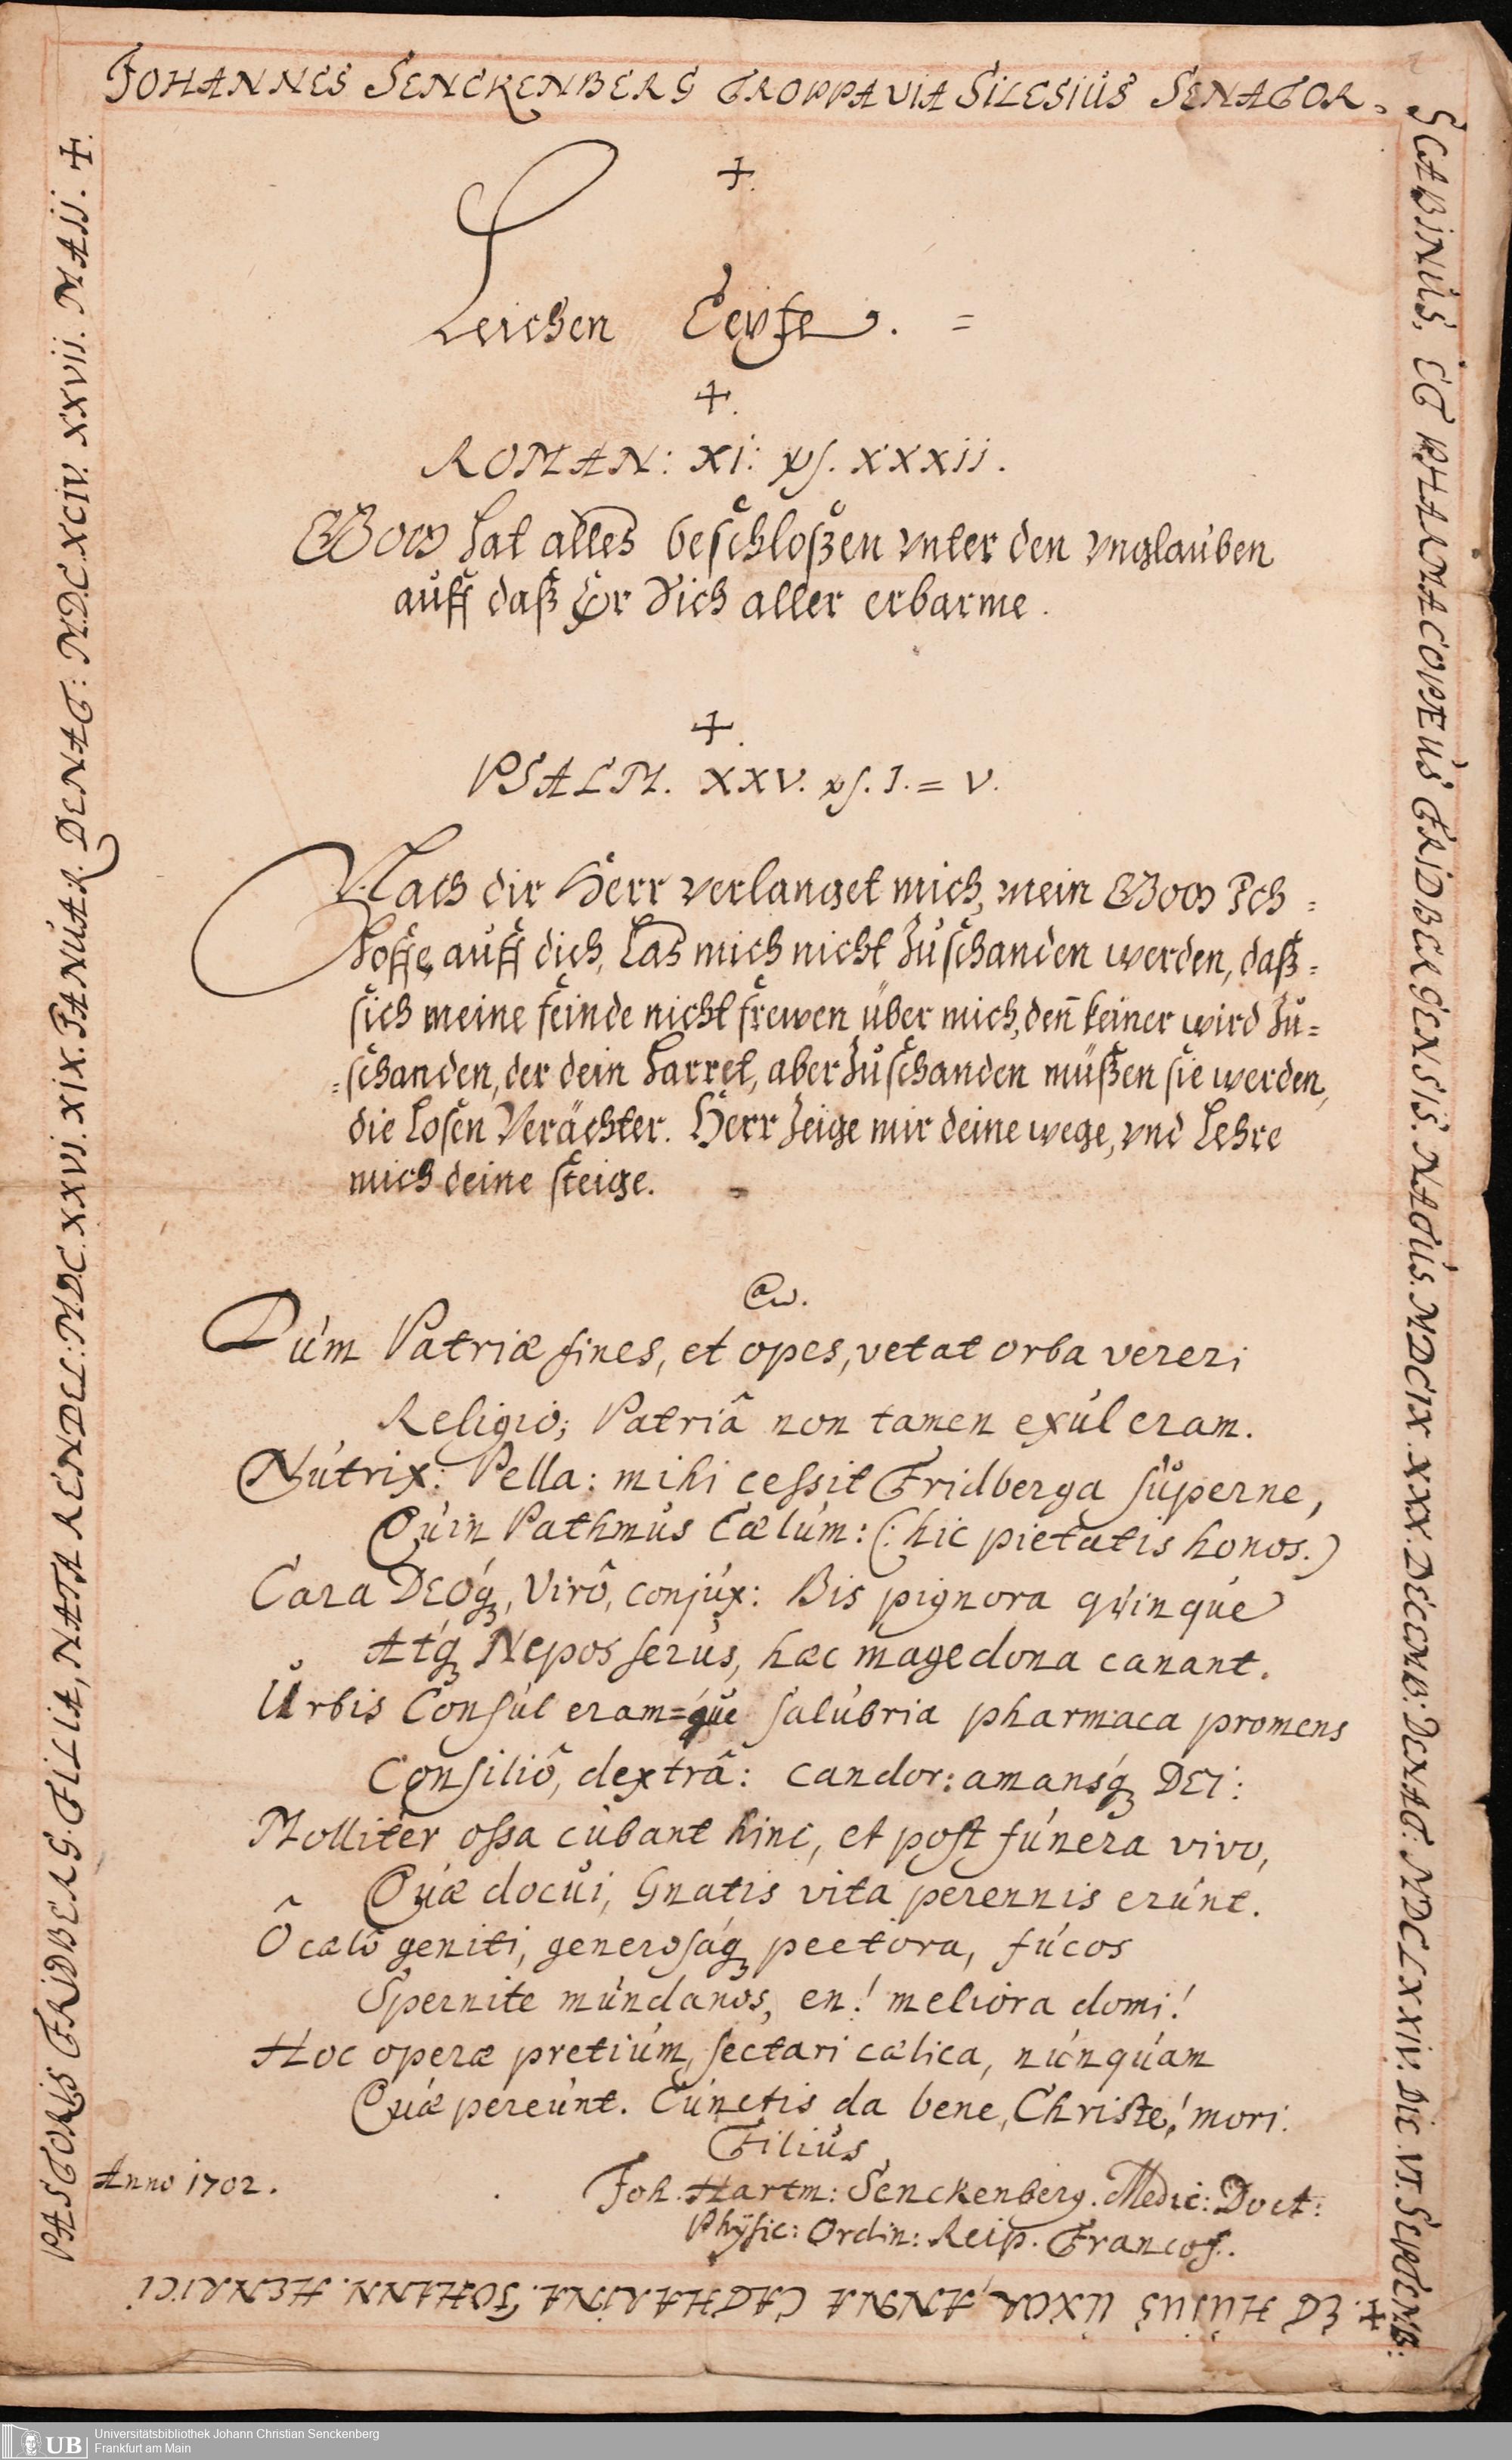 JOHANNES SENCKENBERG TROPPAVIA SILESIUS SENATOR.
SCABINUS, ET PHARMACOPÆUS FRIDBERGENSIS. NATUS. MDCIX. XXX. DECEMB: DENAT: MDCLXXIV. DIE. VI. SEPTEMB:
+. ET HUIUS UXOR, ANNA CATHARINA. JOHANN. HENRICI
PASTORIS FRIDBERG. FILIA, NATA RENDEL: M.DC.XXVI. XIX. JANUAR. DENAT: M.DC.XCIV. XXVII. MAII. +.
+.
Leichen Texte. =
+.
ROMAN: XI: vs. XXXII.
GOTT hat alles beschloßen vnter den vnglauben
auff daß Er Sich aller erbarme.
+.
PSALM. XXV. vs. I. = V.
Nach dir Herr verlanget mich, mein GOTT Ich =
hoffe auff dich, Las mich nicht zuschanden werden, daß =
sich meine feinde nicht frewen über mich, deñ keiner wird zu =
= schanden, der dein harret, aber zuschanden müßen sie werden,
die losen Verächter. Herr zeige mir deine wege, vnd Lehre
mich deine steige.
Dum Patriæ fines, et opes, vetat orba vereri
Religio; Patriâ non tamen exul eram.
Nutrix: Pella: mihi cessit Fridberga superne,
Quin Pathmus Cælum: (: hic pietatis honos.)
Cara DEOq, Virô, conjux: Bis pignora quinque
Atq Nepos serus, hæc mage dona canant.
Urbis Consul eram=que salubria pharmaca promens
Consiliô, dextrâ: candor: amansq DEI:
Molliter ossa cubant hinc, et post funera vivo,
Quæ docui, Gnatis vita perennis erunt.
Ô cælô geniti, generosaq pectora, fucos
Spernite mundanos, en! meliora domi!
Hoc operæ pretium, sectari cælica, nunquam
Quæ pereunt. Cunctis da bene, Christe! mori.
Filius
Anno 1702.
Joh. Hartm: Senckenberg. Medic: Doct:
Physic: Ordin: Reip. Francof.
UB
Universitätsbibliothek Johann Christian Senckenberg
Frankfurt am Main